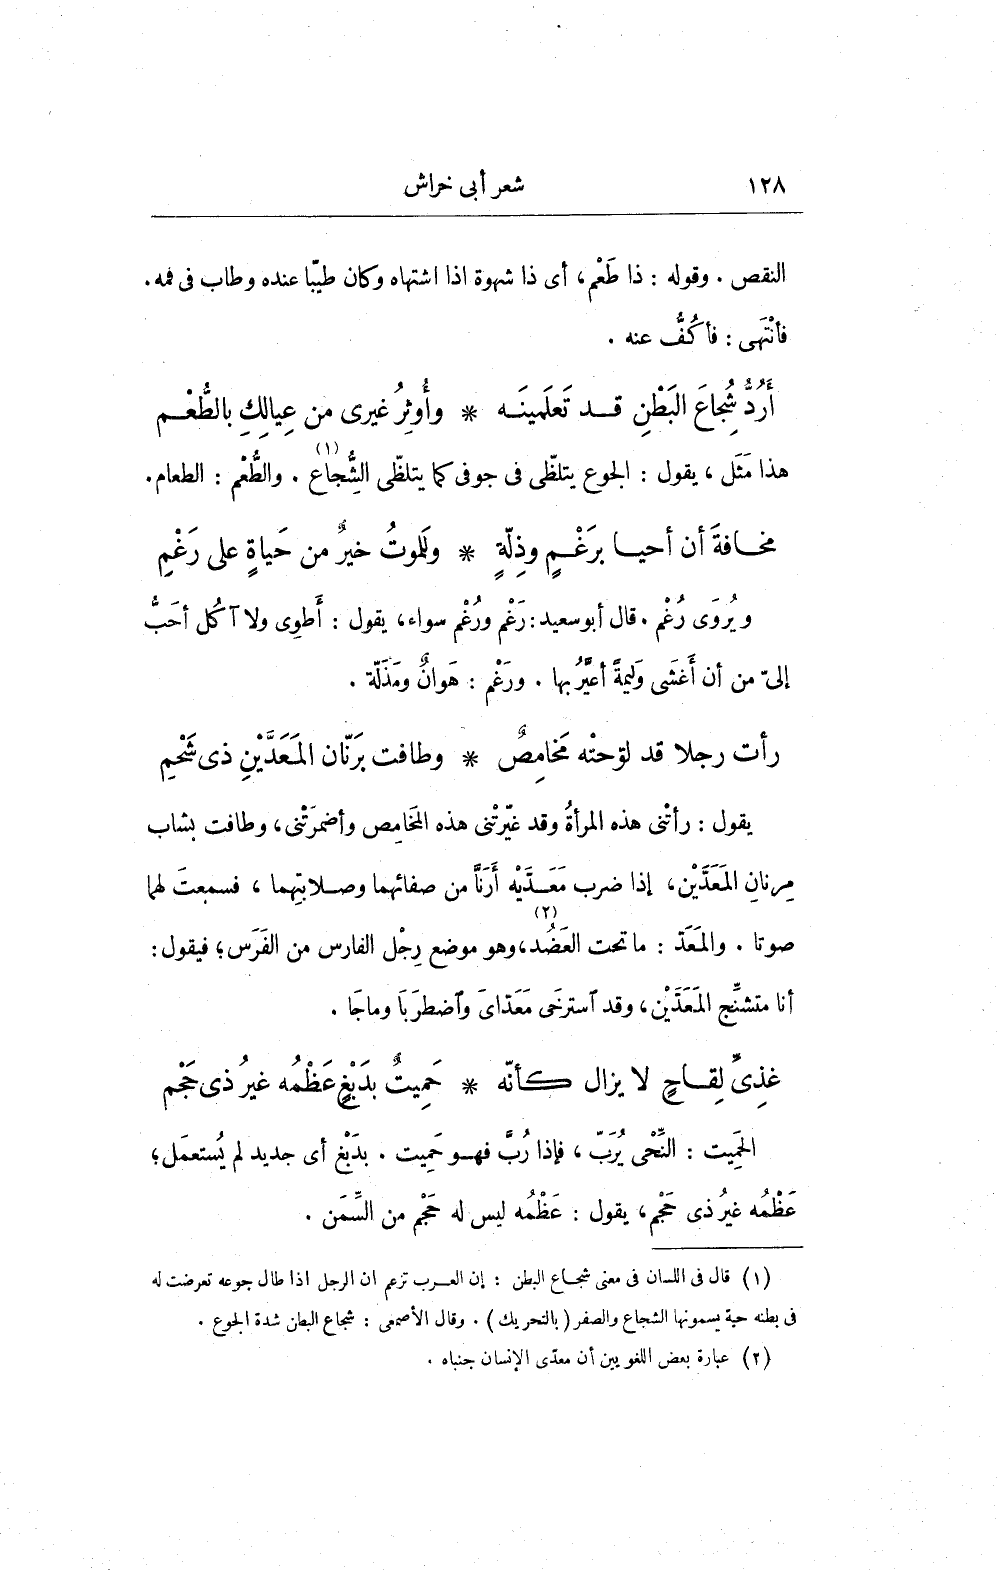 ١٢٨ شعر أبى خراش
النقص . وقوله : ذا طَعْم، أى ذا شهوة اذا اشتهاه وكان طيّبا عنده وطاب فى فمه.
فأنْتَهى : فأكُفُّ عنه .
أَرُدُّ شُجاعَ البَطْنِ قد تَعلَمينَه * وأُوثِرُ غيرى من عِيالِكِ بالطُّعْم
هذا مَثَل ، يقول : الجوع يتلظّى فى جوفى كما يتلظّى الشُّجاع (١) . والطُّعْم : الطعام.
مخافةَ أن أحيا برَغْمٍ وذِلّةٍ * ولَلموتُ خيرٌ من حَياةٍ على رَغْمِ
ويُروَى رُغْم . قال أبو سعيد : رَغْم ورُغْم سواء، يقول : أَطوِى ولا آكُل أحَبُّ
إلىّ من أن أَغشَى وَليمةً أعيَّرُ بها . ورَغْم : هَوانٌ ومَذَلّة .
رأت رجلا قد لوّحتْه مَخامِصٌ * وطافت بَرنّان المَعَدَّيْنِ ذى شَحْمِ
يقول : رأتْنى هذه المرأةُ وقد غيّرتْنى هذه المَخامِص وأضمرَتْنى، وطافت بشاب
مِرنانِ المَعَدَّيْن، إذا ضرب مَعَدَّيْه أَرَنَّا من صفائهما وصلابتِهما ، فسمعتَ لهما
صوتا . والمَعَدّ : ما تحت العَضُد (٢)، وهو موضع رِجْل الفارس من الفَرَس؛ فيقول:
أنا متشنِّج المَعَدَّيْن، وقد ٱسترخَى مَعَدّاىَ وٱضطرَبَا وماجَا .
غذِىُّ لِقاحٍ لا يزال كأنّه * حَمِيتٌ بدَبْغٍ عَظْمُه غيرُ ذى حَجْم
الحَمِيت : النِّحْى يُرَبّ ، فإذا رُبَّ فهو حَمِيت . بدَبْغ أى جديد لم يُستعمَل؛
عَظْمُه غيرُ ذى حَجْم، يقول : عَظْمُه ليس له حَجْم من السِّمَن .
(١) قال فى اللسان فى معنى شجاع البطن : إن العرب تزعم ان الرجل اذا طال جوعه تعرضت له
فى بطنه حية يسمونها الشجاع والصفر (بالتحريك) . وقال الأصمعى : شجاع البطن شدة الجوع .
(٢) عبارة بعض اللغويين أن معدّى الإنسان جنباه .